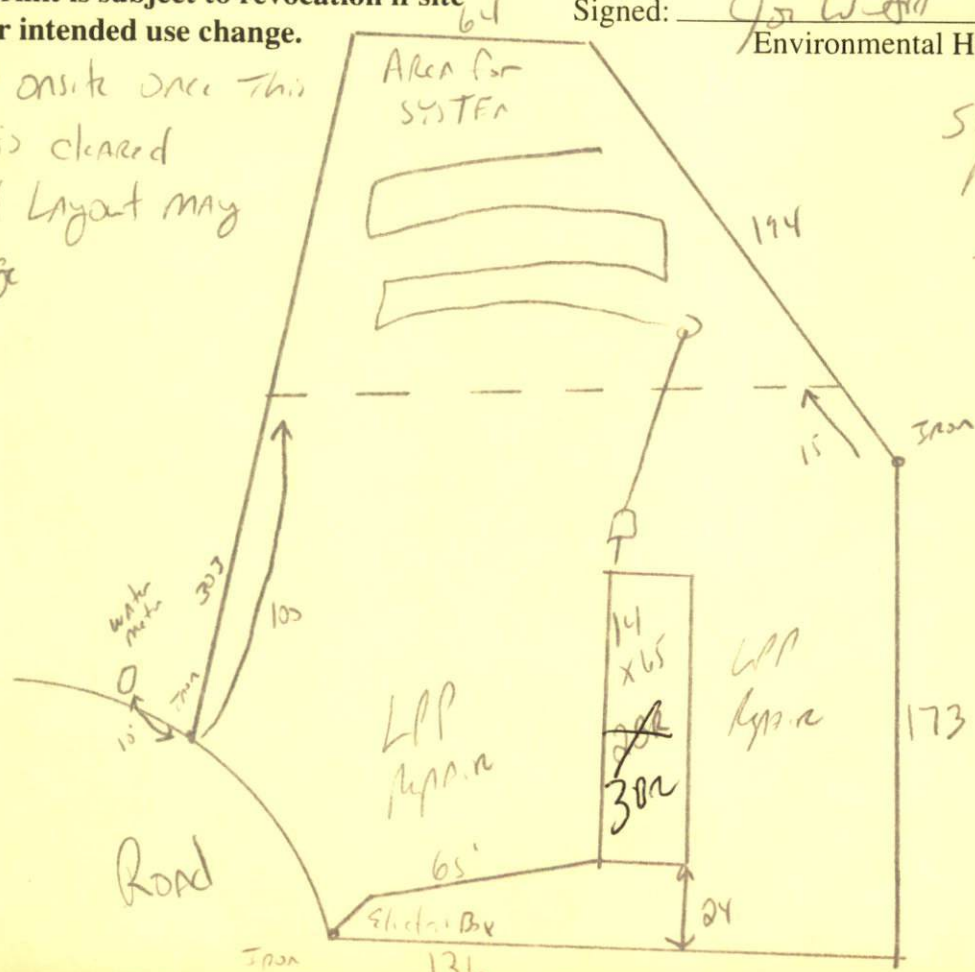 is subject to revocation if site
r intended use change.
Signed:
Environmental H
64
onsite once This
is cleared
Layout may
AREA for
SYSTEM
194
Iron
15
303
100
water
meter
Iron
10'
14
x65
2BR
3BR
LPP
Repair
LPP
Repair
173
Road
65'
Electric Box
24
Iron
131